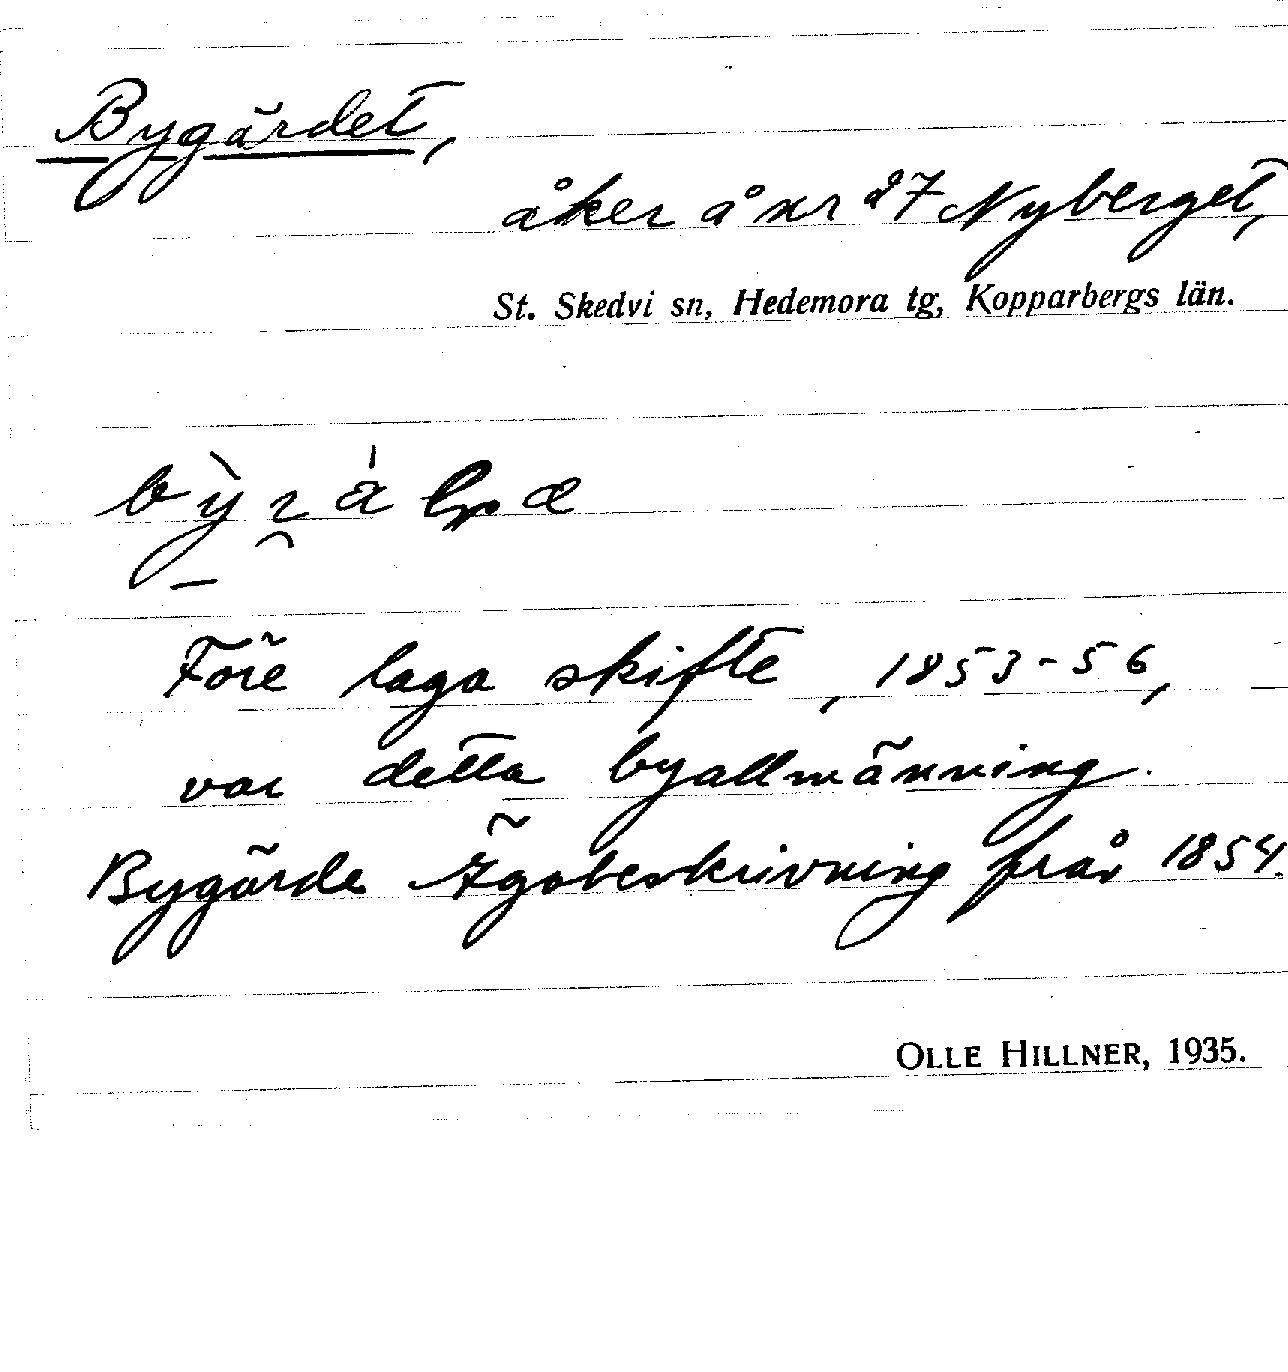 Bygärdet,
åker å nr 27 Nyberget,
St. Skedvi sn, Hedemora tg, Kopparbergs län.
Före laga skifte, 1853-56,
var detta byallmänning.
Bygärde Ägobeskrivning från 1854.
OLLE HILLNER, 1935.